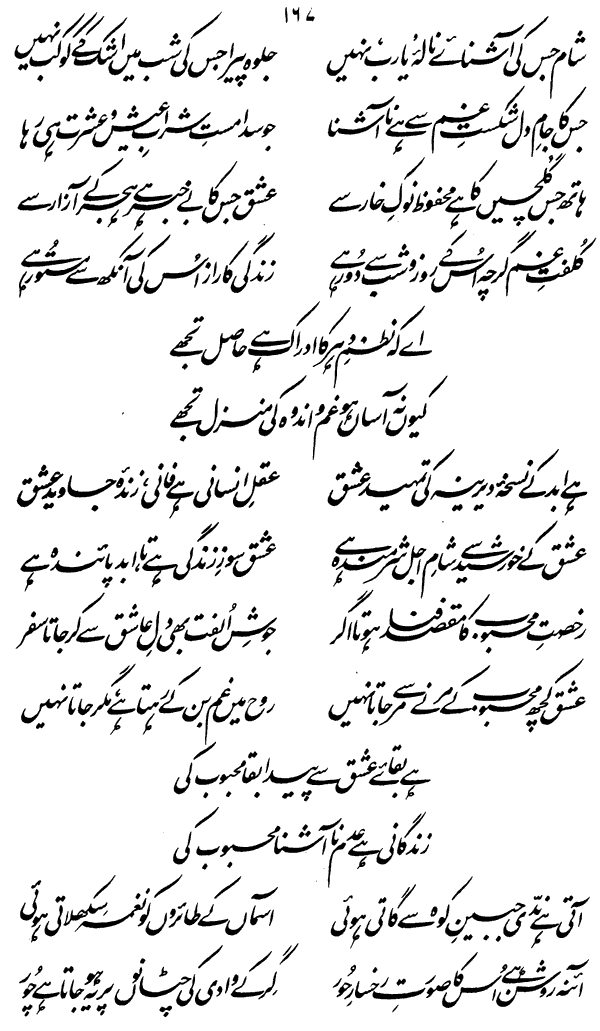 ۱۶۷
شام جس کی آشنائے نالۂ یارب نہیں جلوہ پیرا جس کی شب میں اشک کے کوکب نہیں
جس کا جامِ دل شکستِ غم سے ہے ناآشنا جو سدا مستِ شرابِ عیش و عشرت ہی رہا
ہاتھ جس گلچیں کا ہے محفوظ نوکِ خار سے عشق جس کا بے خبر ہے ہجر کے آزار سے
کُلفتِ غم گرچہ اُس کے روز و شب سے دُور ہے زندگی کا راز اُس کی آنکھ سے مستُور ہے
اے کہ نظمِ دہر کا ادراک ہے حاصل تجھے
کیوں نہ آساں ہو غم و اندوہ کی منزل تجھے
ہے ابد کے نسخۂ دیرینہ کی تمہید عشق عقلِ انسانی ہے فانی، زندۂ جاوید عشق
عشق کے خورشید سے شامِ اجل شرمندہ ہے عشق سوزِ زندگی ہے تا ابد پائندہ ہے
رخصتِ محبوب کا مقصد فنا ہوتا اگر جوشِ اُلفت بھی دلِ عاشق سے کر جاتا سفر
عشق کچھ محبوب کے مرنے سے مر جاتا نہیں روح میں غم بن کے رہتا ہے، مگر جاتا نہیں
ہے بقائے عشق سے پیدا بقا محبوب کی
زندگانی ہے عدم ناآشنا محبوب کی
آتی ہے ندّی جبینِ کوہ سے گاتی ہوئی آسماں کے طائروں کو نغمہ سِکھلاتی ہوئی
آئنہ روشن ہے اُس کا صورتِ رخسارِ حُور گِر کے وادی کی چٹانوں پر یہ ہو جاتا ہے چُور